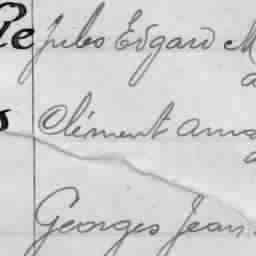 le Jules Edgard M
s Clément
Georges Jean